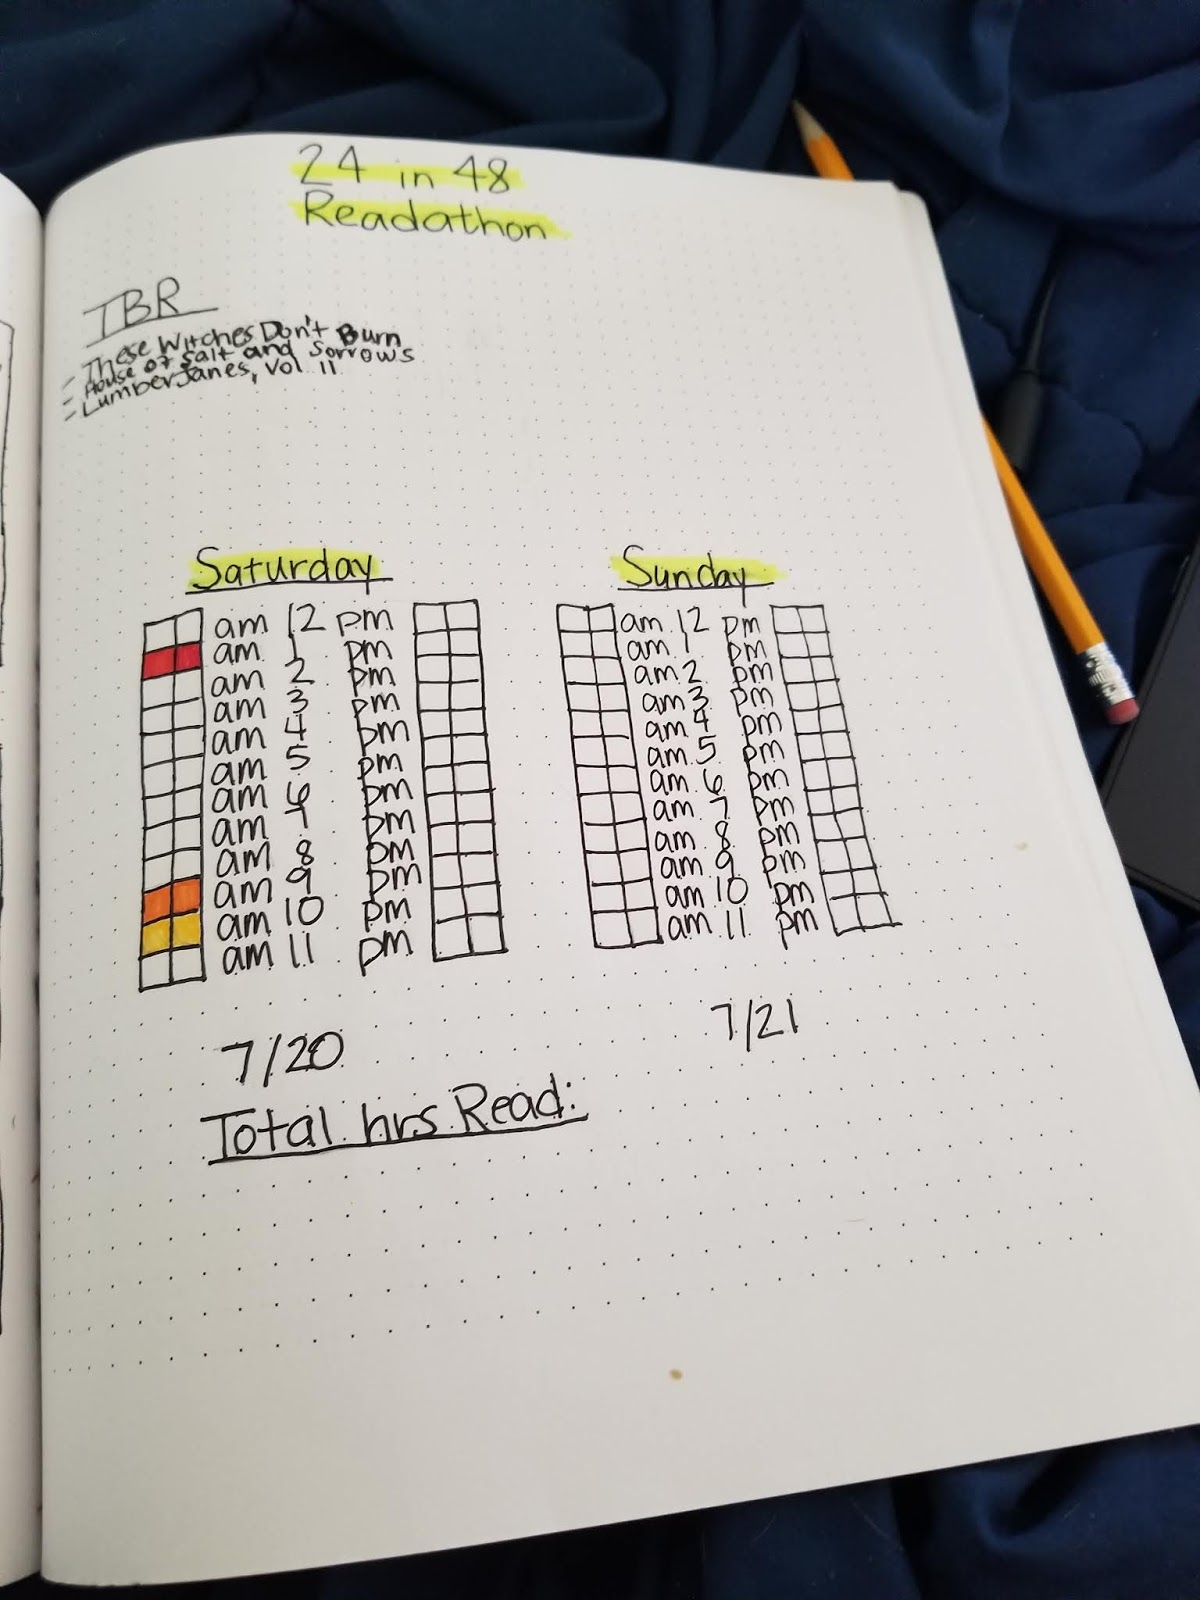 24 in 48
Readathon
TBR
- These Witches Don't Burn
- House of Salt and Sorrows
- LumberJanes, Vol. 11
Saturday
am 12 pm
am 1 pm
am 2 pm
am 3 pm
am 4 pm
am 5 pm
am 6 pm
am 7 pm
am 8 pm
am 9 pm
am 10 pm
am 11 pm
7/20
Sunday
am 12 pm
am 1 pm
am 2 pm
am 3 pm
am 4 pm
am 5 pm
am 6 pm
am 7 pm
am 8 pm
am 9 pm
am 10 pm
am 11 pm
7/21
Total hrs Read: